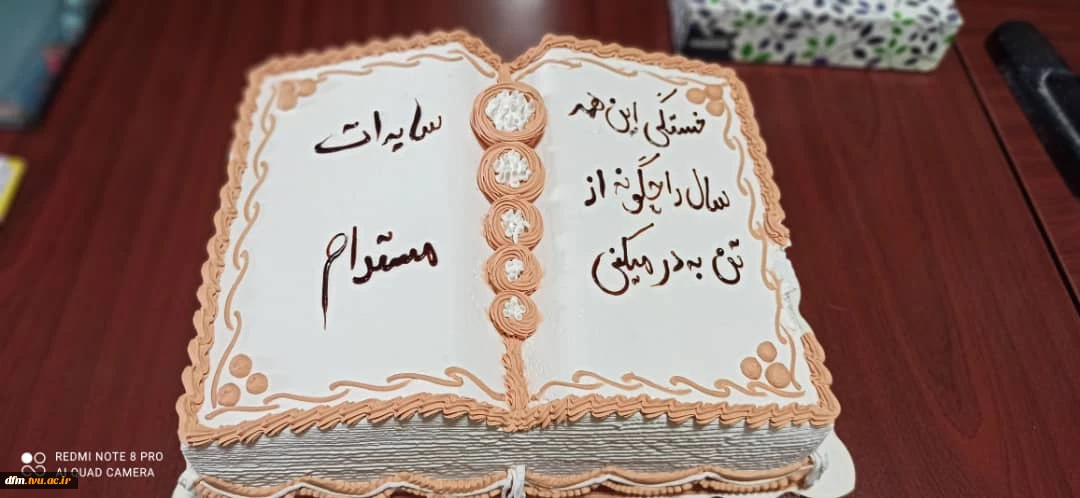 خستگی این همه
سال را چگونه از
تن به در میکنی
سایه ات
مستدام
REDMI NOTE 8 PRO
AI QUAD CAMERA
dfm.tvu.ac.ir